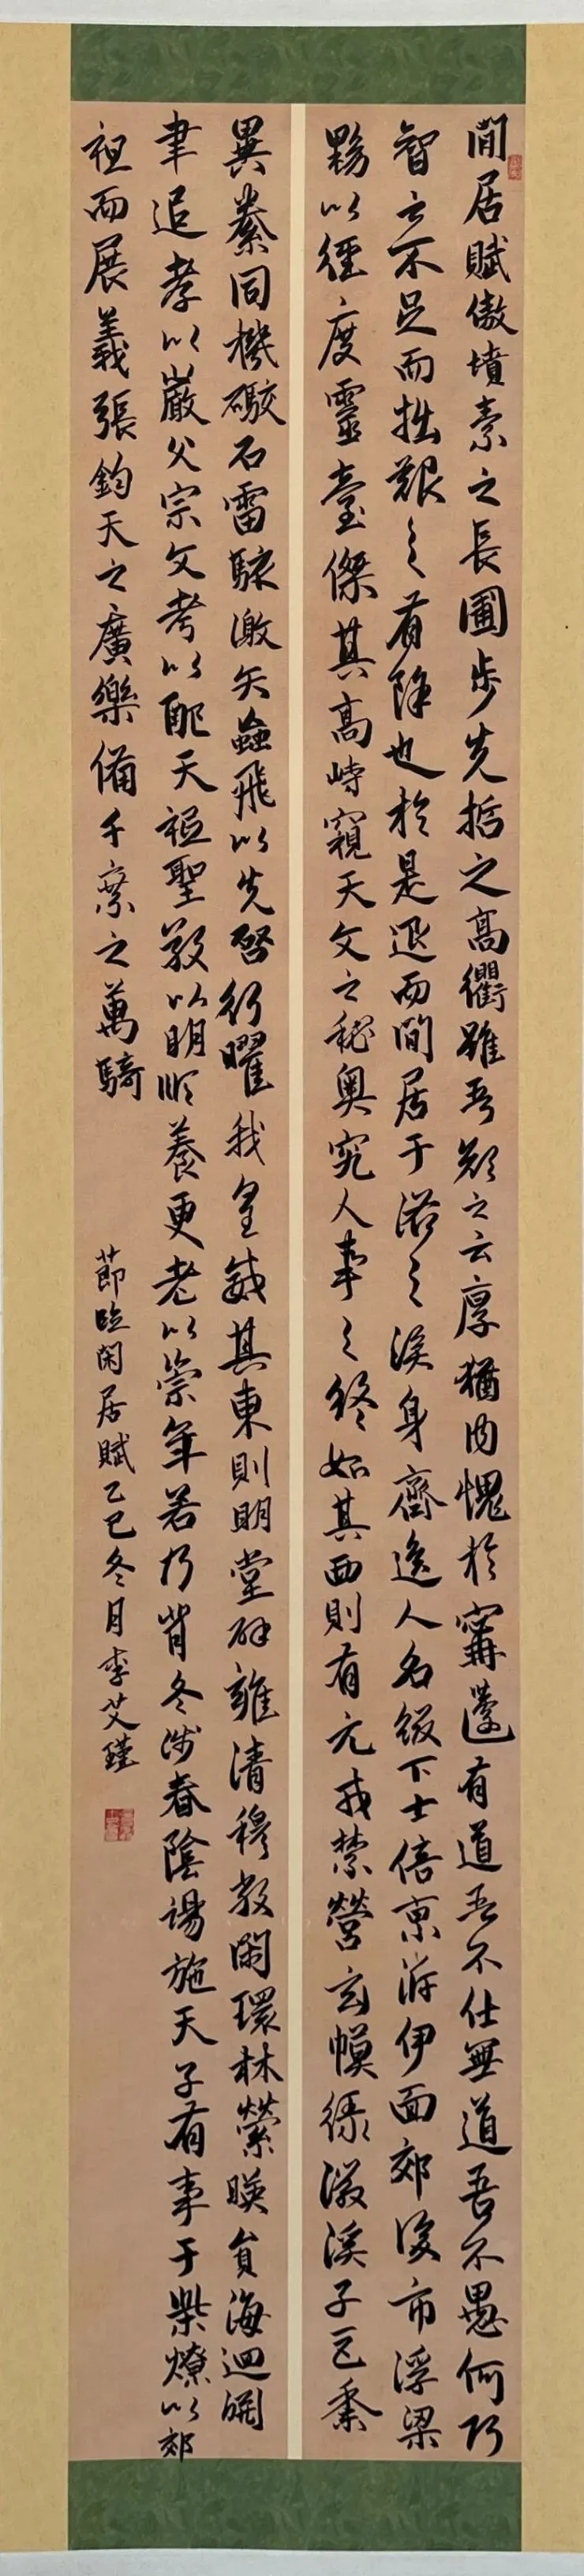 閒居賦傲墳素之長圃步先哲之高衢雖吾顏之云厚猶內愧於甯蘧有道吾不仕無道吾不愚何巧
智之不足而拙艱之有餘也於是退而閒居于洛之涘身齊逸人名綴下士倍京泝伊面郊後市浮梁
黝以徑度靈臺傑其高峙窺天文之秘奧究人事之終始其西則有元戎禁營玄幙綠徽溪子巨黍
異絭同機礮石雷駭激矢蝱飛以先啓行曜我皇威其東則明堂辟雍清穆敞閑環林縈暎員海迴淵
聿追孝以嚴父宗文考以配天祗聖敬以明順養更老以崇年若乃背冬涉春陰謝陽施天子有事于柴燎以郊
祖而展義張鈞天之廣樂備千乘之萬騎
節臨閑居賦乙巳冬月李艾瑾